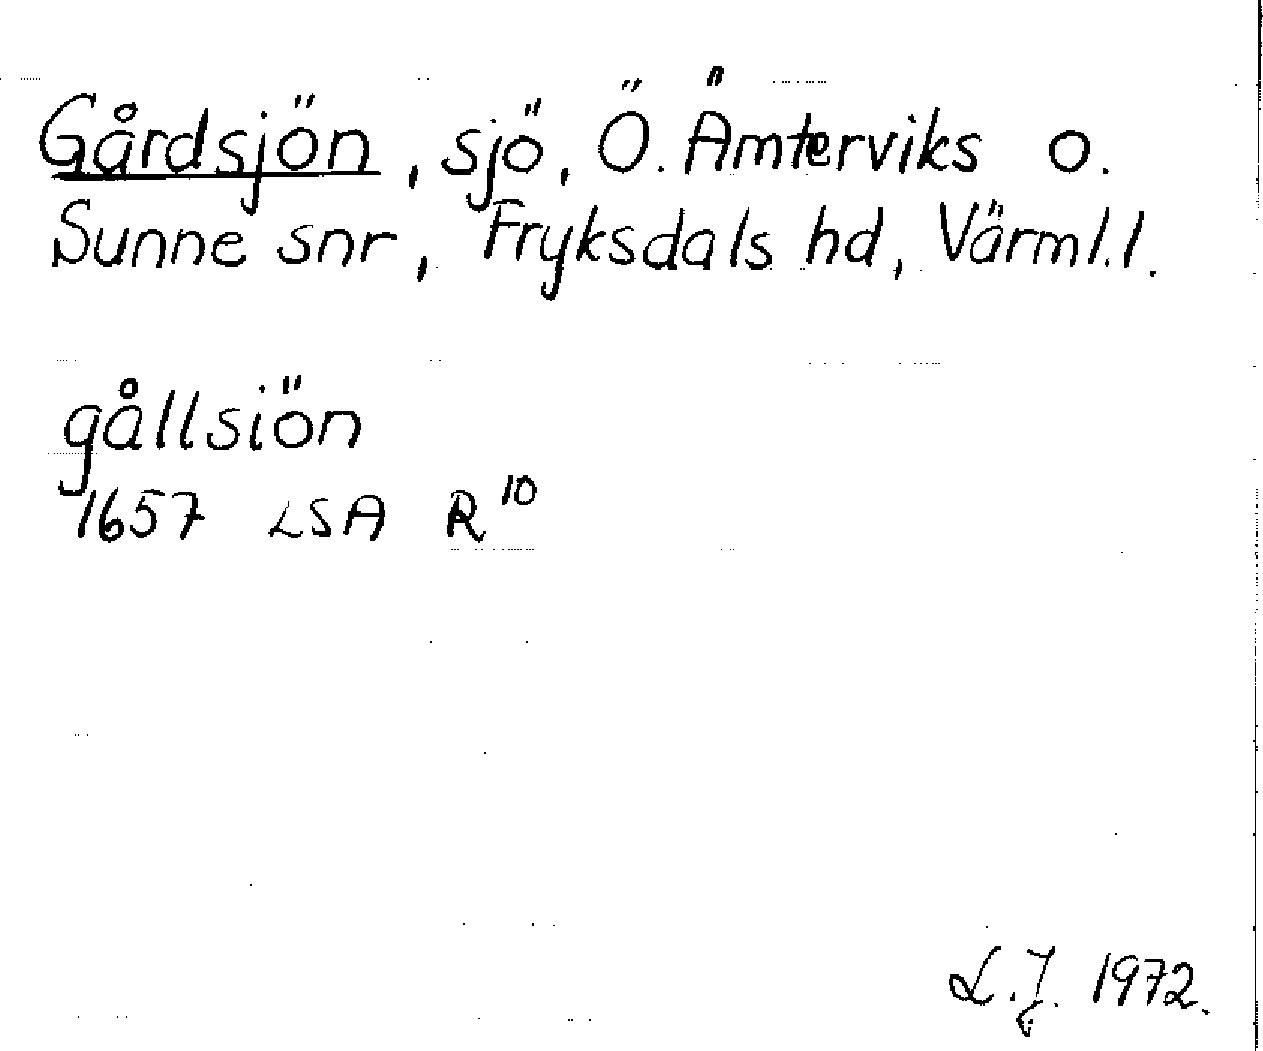 Gårdsjön, sjö, Ö. Ämterviks o.
Sunne snr, Fryksdals hd, Värml.l.
gållsiön
1657 LSA R¹⁰
L.J. 1972.